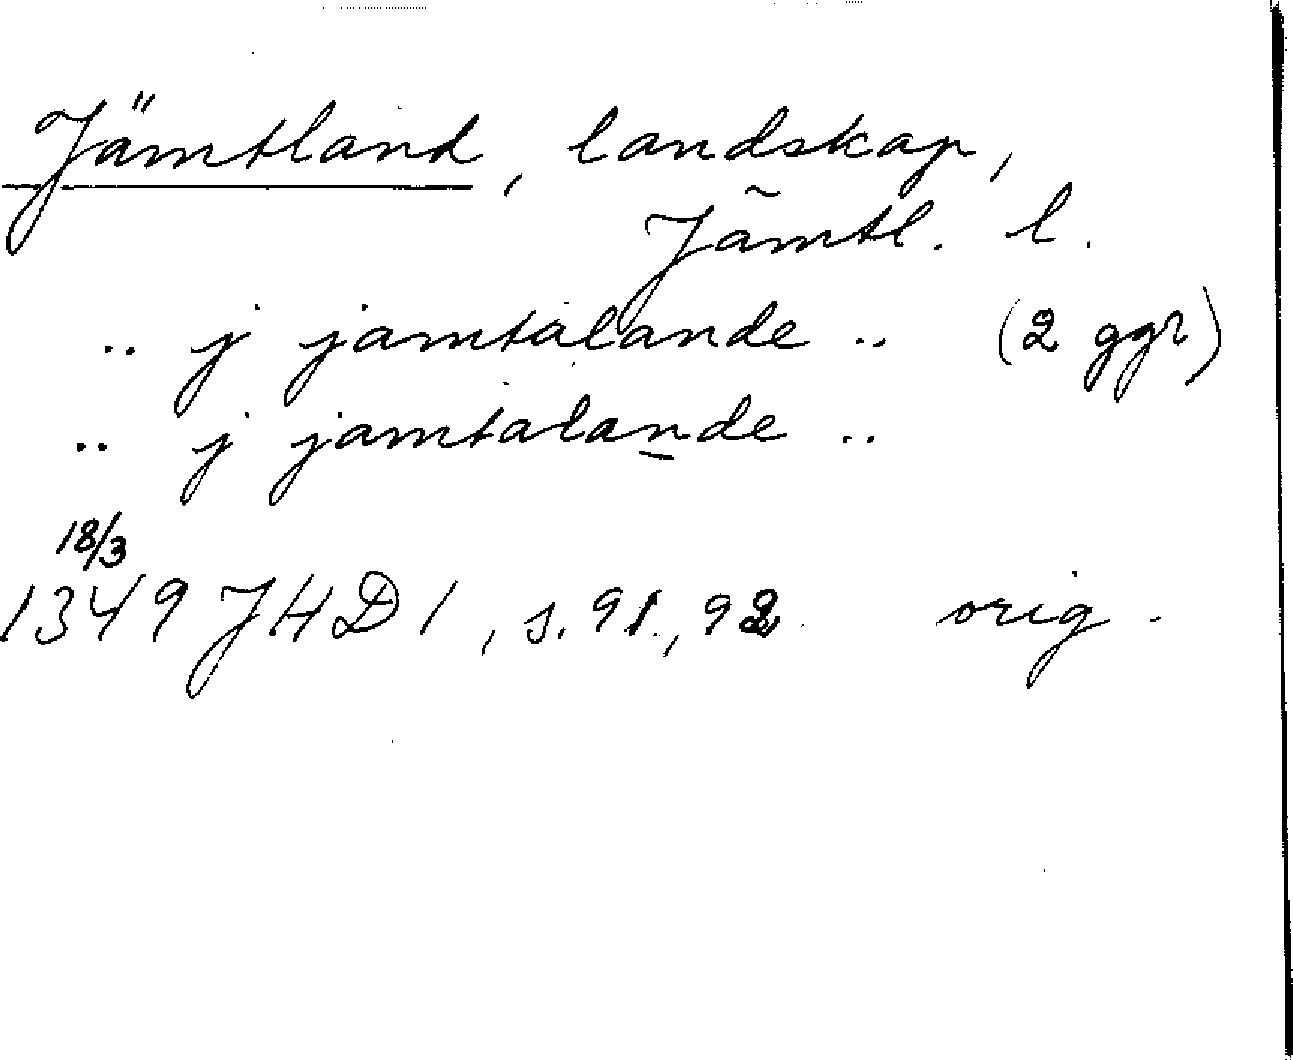 Jämtland, landskap,
Jämtl. l.
.. j jamtalande .. (2 ggr)
.. j jamtalande ..
18/3
1349 JHD 1, s. 91., 92 orig.